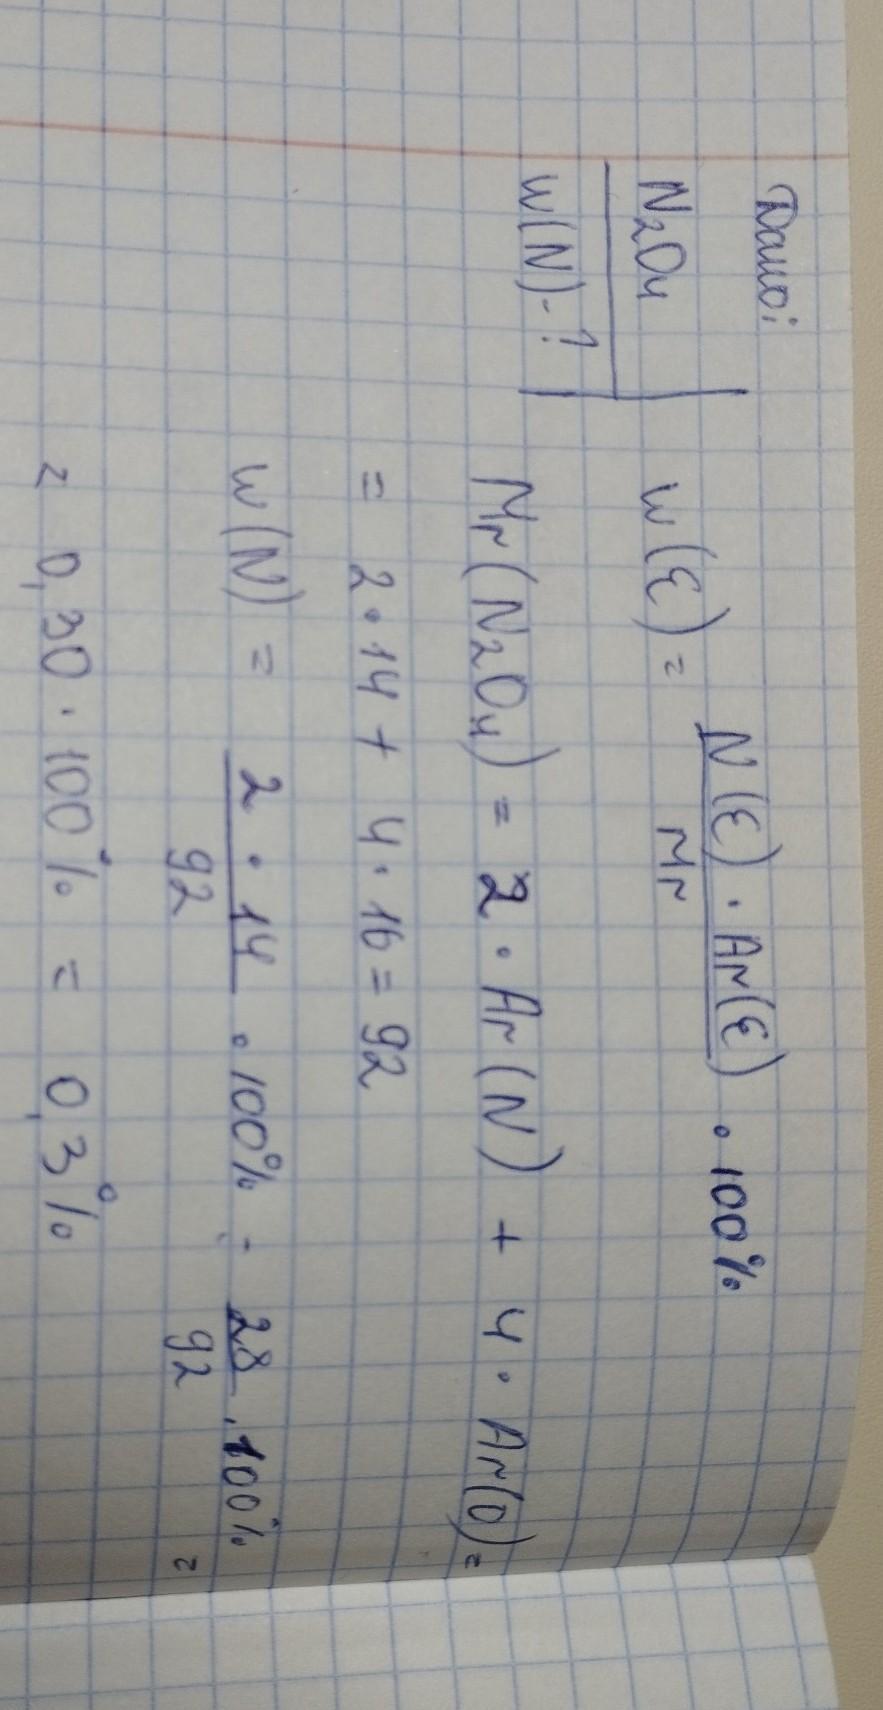 Дано:
N₂O₄
w(N)-?
w(ε) = N(ε) · Ar(ε) / Mr · 100%
Mr(N₂O₄) = 2 · Ar(N) + 4 · Ar(O) =
= 2 · 14 + 4 · 16 = 92
w(N) = 2 · 14 / 92 · 100% = 28 / 92 · 100% =
= 0,30 · 100% = 0,3%